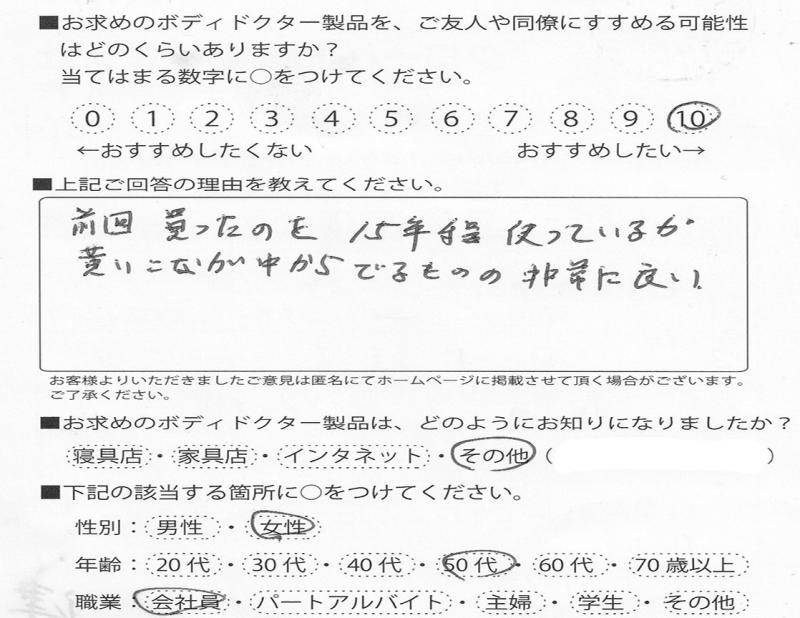 ■お求めのボディドクター製品を、ご友人や同僚にすすめる可能性
はどのくらいありますか？
当てはまる数字に○をつけてください。
0 1 2 3 4 5 6 7 8 9 10
←おすすめしたくない おすすめしたい→
■上記ご回答の理由を教えてください。
前回 買ったのを 15年程 使っているが
黄いこなが中から でるものの 非常に良い。
お客様よりいただきましたご意見は匿名にてホームページに掲載させて頂く場合がございます。
ご了承ください。
■お求めのボディドクター製品は、どのようにお知りになりましたか？
寝具店・家具店・インタネット・その他（ ）
■下記の該当する箇所に○をつけてください。
性別：男性・女性
年齢：20代・30代・40代・50代・60代・70歳以上
職業：会社員・パートアルバイト・主婦・学生・その他